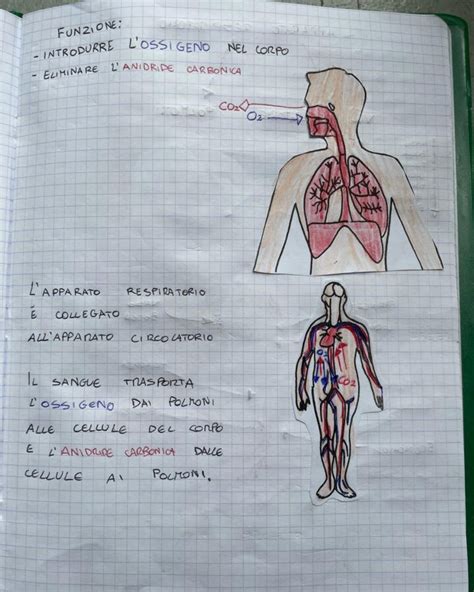 FUNZIONE:
- INTRODURRE L'OSSIGENO NEL CORPO
- ELIMINARE L'ANIDRIDE CARBONICA
CO2
O2
L'APPARATO RESPIRATORIO
È COLLEGATO
ALL'APPARATO CIRCOLATORIO
O2
CO2
IL SANGUE TRASPORTA
L'OSSIGENO DAI POLMONI
ALLE CELLULE DEL CORPO
E L'ANIDRIDE CARBONICA DALLE
CELLULE AI POLMONI.